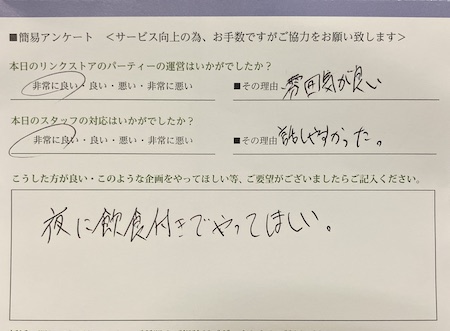 ■簡易アンケート ＜サービス向上の為、お手数ですがご協力をお願い致します＞
本日のリンクストアのパーティーの運営はいかがでしたか？
非常に良い・良い・悪い・非常に悪い ■その理由 雰囲気が良い
本日のスタッフの対応はいかがでしたか？
非常に良い・良い・悪い・非常に悪い ■その理由 話しやすかった。
こうした方が良い・このような企画をやってほしい等、ご要望がございましたらご記入ください。
夜に飲食付きでやってほしい。